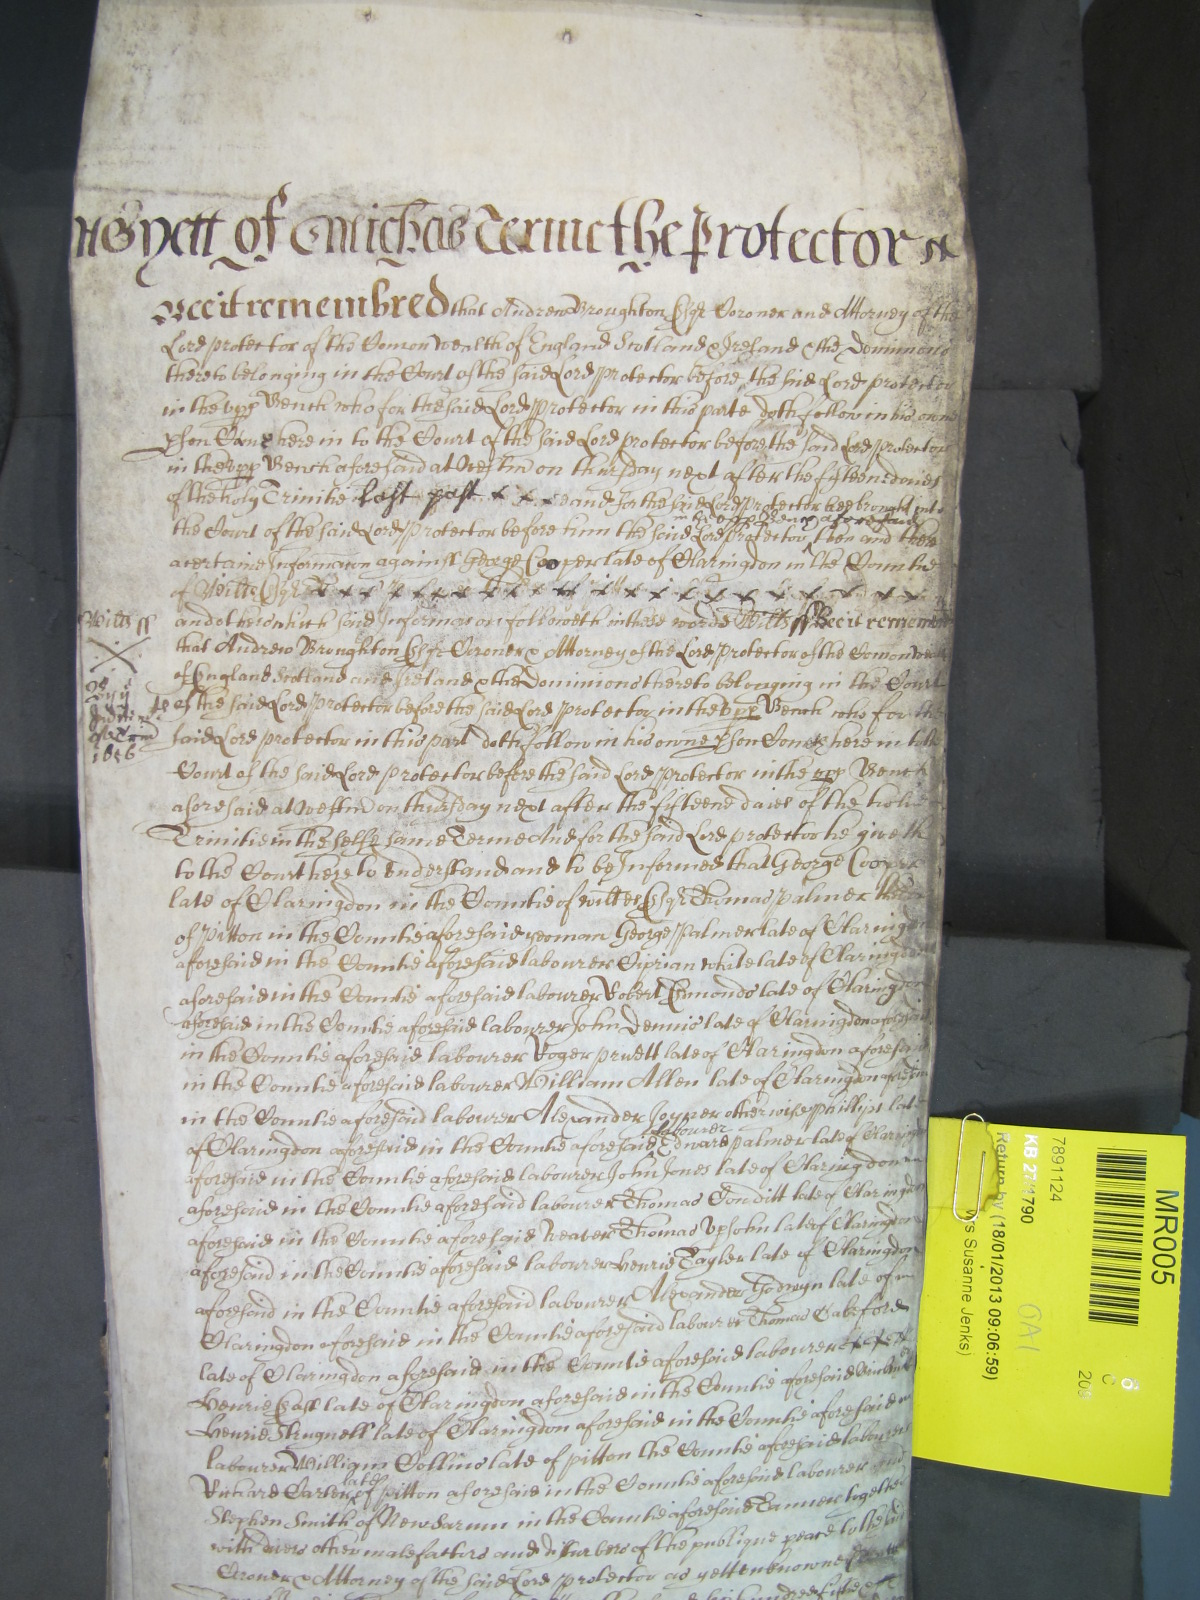 As yett of Michas Terme the Protector
Bee it remembred that Andrew Broughton Esqr Coroner and Attorney of the
Lord protector of the Comon wealth of England Scotland & Ireland & the Dominions
thereto belonging in the Court of the said Lord protector before the said Lord protector
in the upp Bench who for the said Lord protector in this parte doth follow in his owne
pson Comes here in to the Court of the said Lord protector before the said Lord protector
in the upp Bench aforesaid at Westm on thursday next after the fifteene daies
of the holy Trinitie last past x x x and for the said Lord protector hee brought into
in the upp Bench aforesaid
the Court of the said Lord protector before him the said Lord protector then and there
a certaine Informacon against George Cooper late of Claringdon in the Countie
of Wilts Esqr x x x x x x x x x x x x x x x x
Wilts ss
and others which said Informacon followeth in these words Wilts ss Bee it remembred
that Andrew Broughton Esqr Coroner & Attorney of the Lord protector of the Comon wealth
of England Scotland and Ireland & the Dominions thereto belonging in the Court
of the said Lord protector before the said Lord protector in the upp Bench who for the
1656
said Lord protector in this part doth follow in his owne pson Comes here in to the
Court of the said Lord protector before the said Lord protector in the upp Bench
aforesaid at Westm on thursday next after the fifteene daies of the holie
Trinitie in the selfe same Terme And for the said Lord protector he giveth
to the Court here to understand and to be Informed that George Cooper
late of Claringdon in the Countie of wiltes Esqr Thomas palmer
of pitton in the Countie aforesaid yeoman George palmer late of Claringdon
aforesaid in the Countie aforesaid labourer Ciprian white late of Claringdon
aforesaid in the Countie aforesaid labourer Robert Emonds late of Claringdon
aforesaid in the Countie aforesaid labourer John Dennis late of Claringdon aforesaid
in the Countie aforesaid labourer Roger pruett late of Claringdon aforesaid
in the Countie aforesaid labourer William Allen late of Claringdon aforesaid
in the Countie aforesaid labourer Alexander Joyner otherwise phillips late
labourer
of Claringdon aforesaid in the Countie aforesaid Edward palmer late of Claringdon
aforesaid in the Countie aforesaid labourer John Jones late of Claringdon
aforesaid in the Countie aforesaid labourer Thomas Conditt late of Claringdon
aforesaid in the Countie aforesaid heater Thomas Upsohn late of Claringdon
aforesaid in the Countie aforesaid labourer Henrie Tayler late of Claringdon
aforesaid in the Countie aforesaid labourer Alexander Godwyn late of
Claringdon aforesaid in the Countie aforesaid labourer Thomas Oakeford
late of Claringdon aforesaid in the Countie aforesaid labourer x x x
Henrie late of Claringdon aforesaid in the Countie aforesaid
Henrie Strugnell late of Claringdon aforesaid in the Countie aforesaid
labourer William Collins late of pitton the Countie aforesaid labourer
late
Richard Carter of pitton aforesaid in the Countie aforesaid labourer and
Stephen Smith of New Sarum in the Countie aforesaid Tanner together
with divers other malefactors and disturbers of the publique peace to the said
Coroner & Attorney of the said Lord protector as yett unknowne
MR005
7891124
KB 27/1790
Return by (18/01/2013 09:06:59)
Susanne Jenks)
GA1
6
C